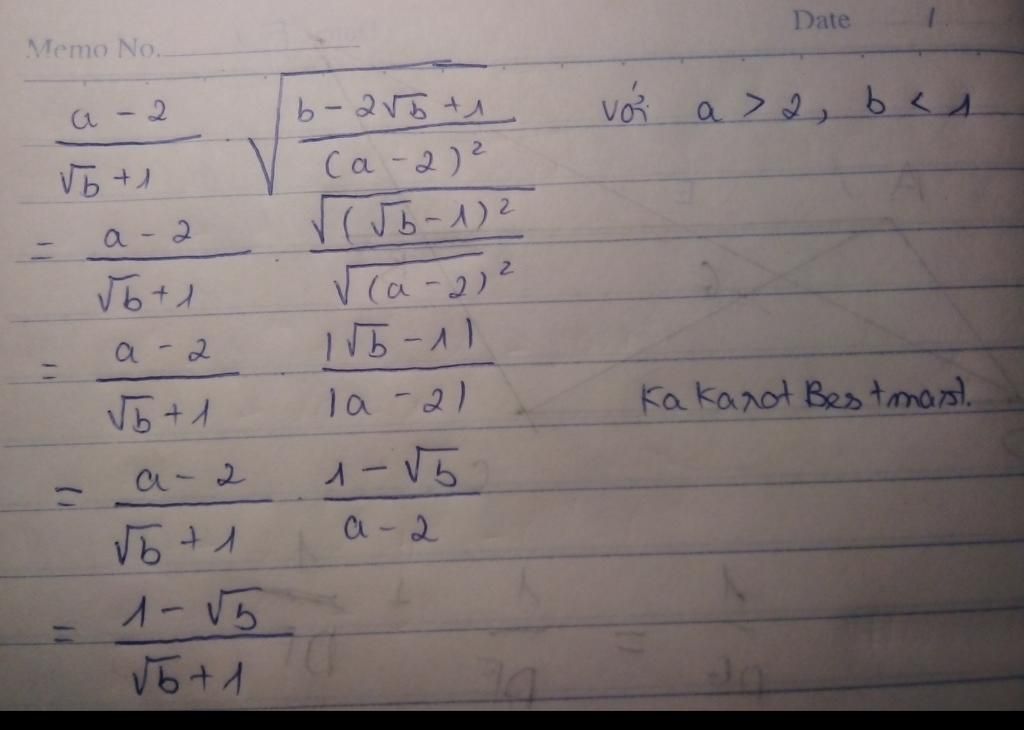 Memo No.
Date 1
a - 2 / √b + 1 . √(b - 2√b + 1 / (a - 2)²) với a > 2, b < 1
= a - 2 / √b + 1 . √(√b - 1)² / √(a - 2)²
= a - 2 / √b + 1 . |√b - 1| / |a - 2|
KaKarot Bestmart.
= a - 2 / √b + 1 . 1 - √b / a - 2
= 1 - √b / √b + 1